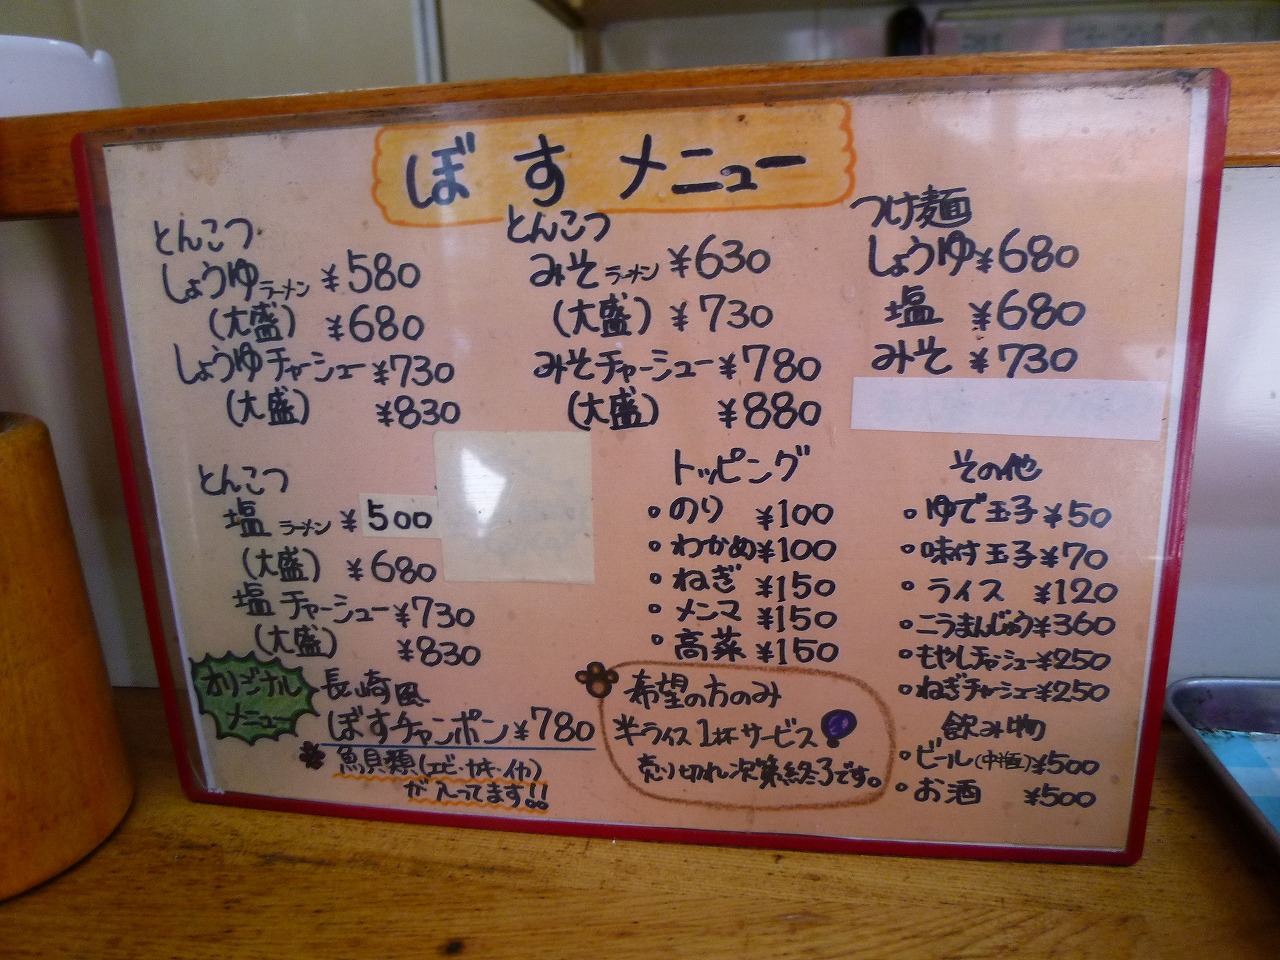 ぼす メニュー
とんこつ
しょうゆラーメン ¥580
(大盛) ¥680
しょうゆチャーシュー ¥730
(大盛) ¥830
とんこつ
みそラーメン ¥630
(大盛) ¥730
みそチャーシュー ¥780
(大盛) ¥880
つけ麺
しょうゆ ¥680
塩 ¥680
みそ ¥730
とんこつ
塩ラーメン ¥500
(大盛) ¥680
塩チャーシュー ¥730
(大盛) ¥830
オリジナルメニュー
長崎風
ぼすチャンポン ¥780
魚貝類(エビ・カキ・イカ)
が入ってます!!
トッピング
・のり ¥100
・わかめ ¥100
・ねぎ ¥150
・メンマ ¥150
・高菜 ¥150
希望の方のみ
半ライス1杯サービス
売り切れ次第終了です。
その他
・ゆで玉子 ¥50
・味付玉子 ¥70
・ライス ¥120
・こうまんじゅう ¥360
・もやしチャーシュー ¥250
・ねぎチャーシュー ¥250
飲み物
・ビール(中瓶) ¥500
・お酒 ¥500